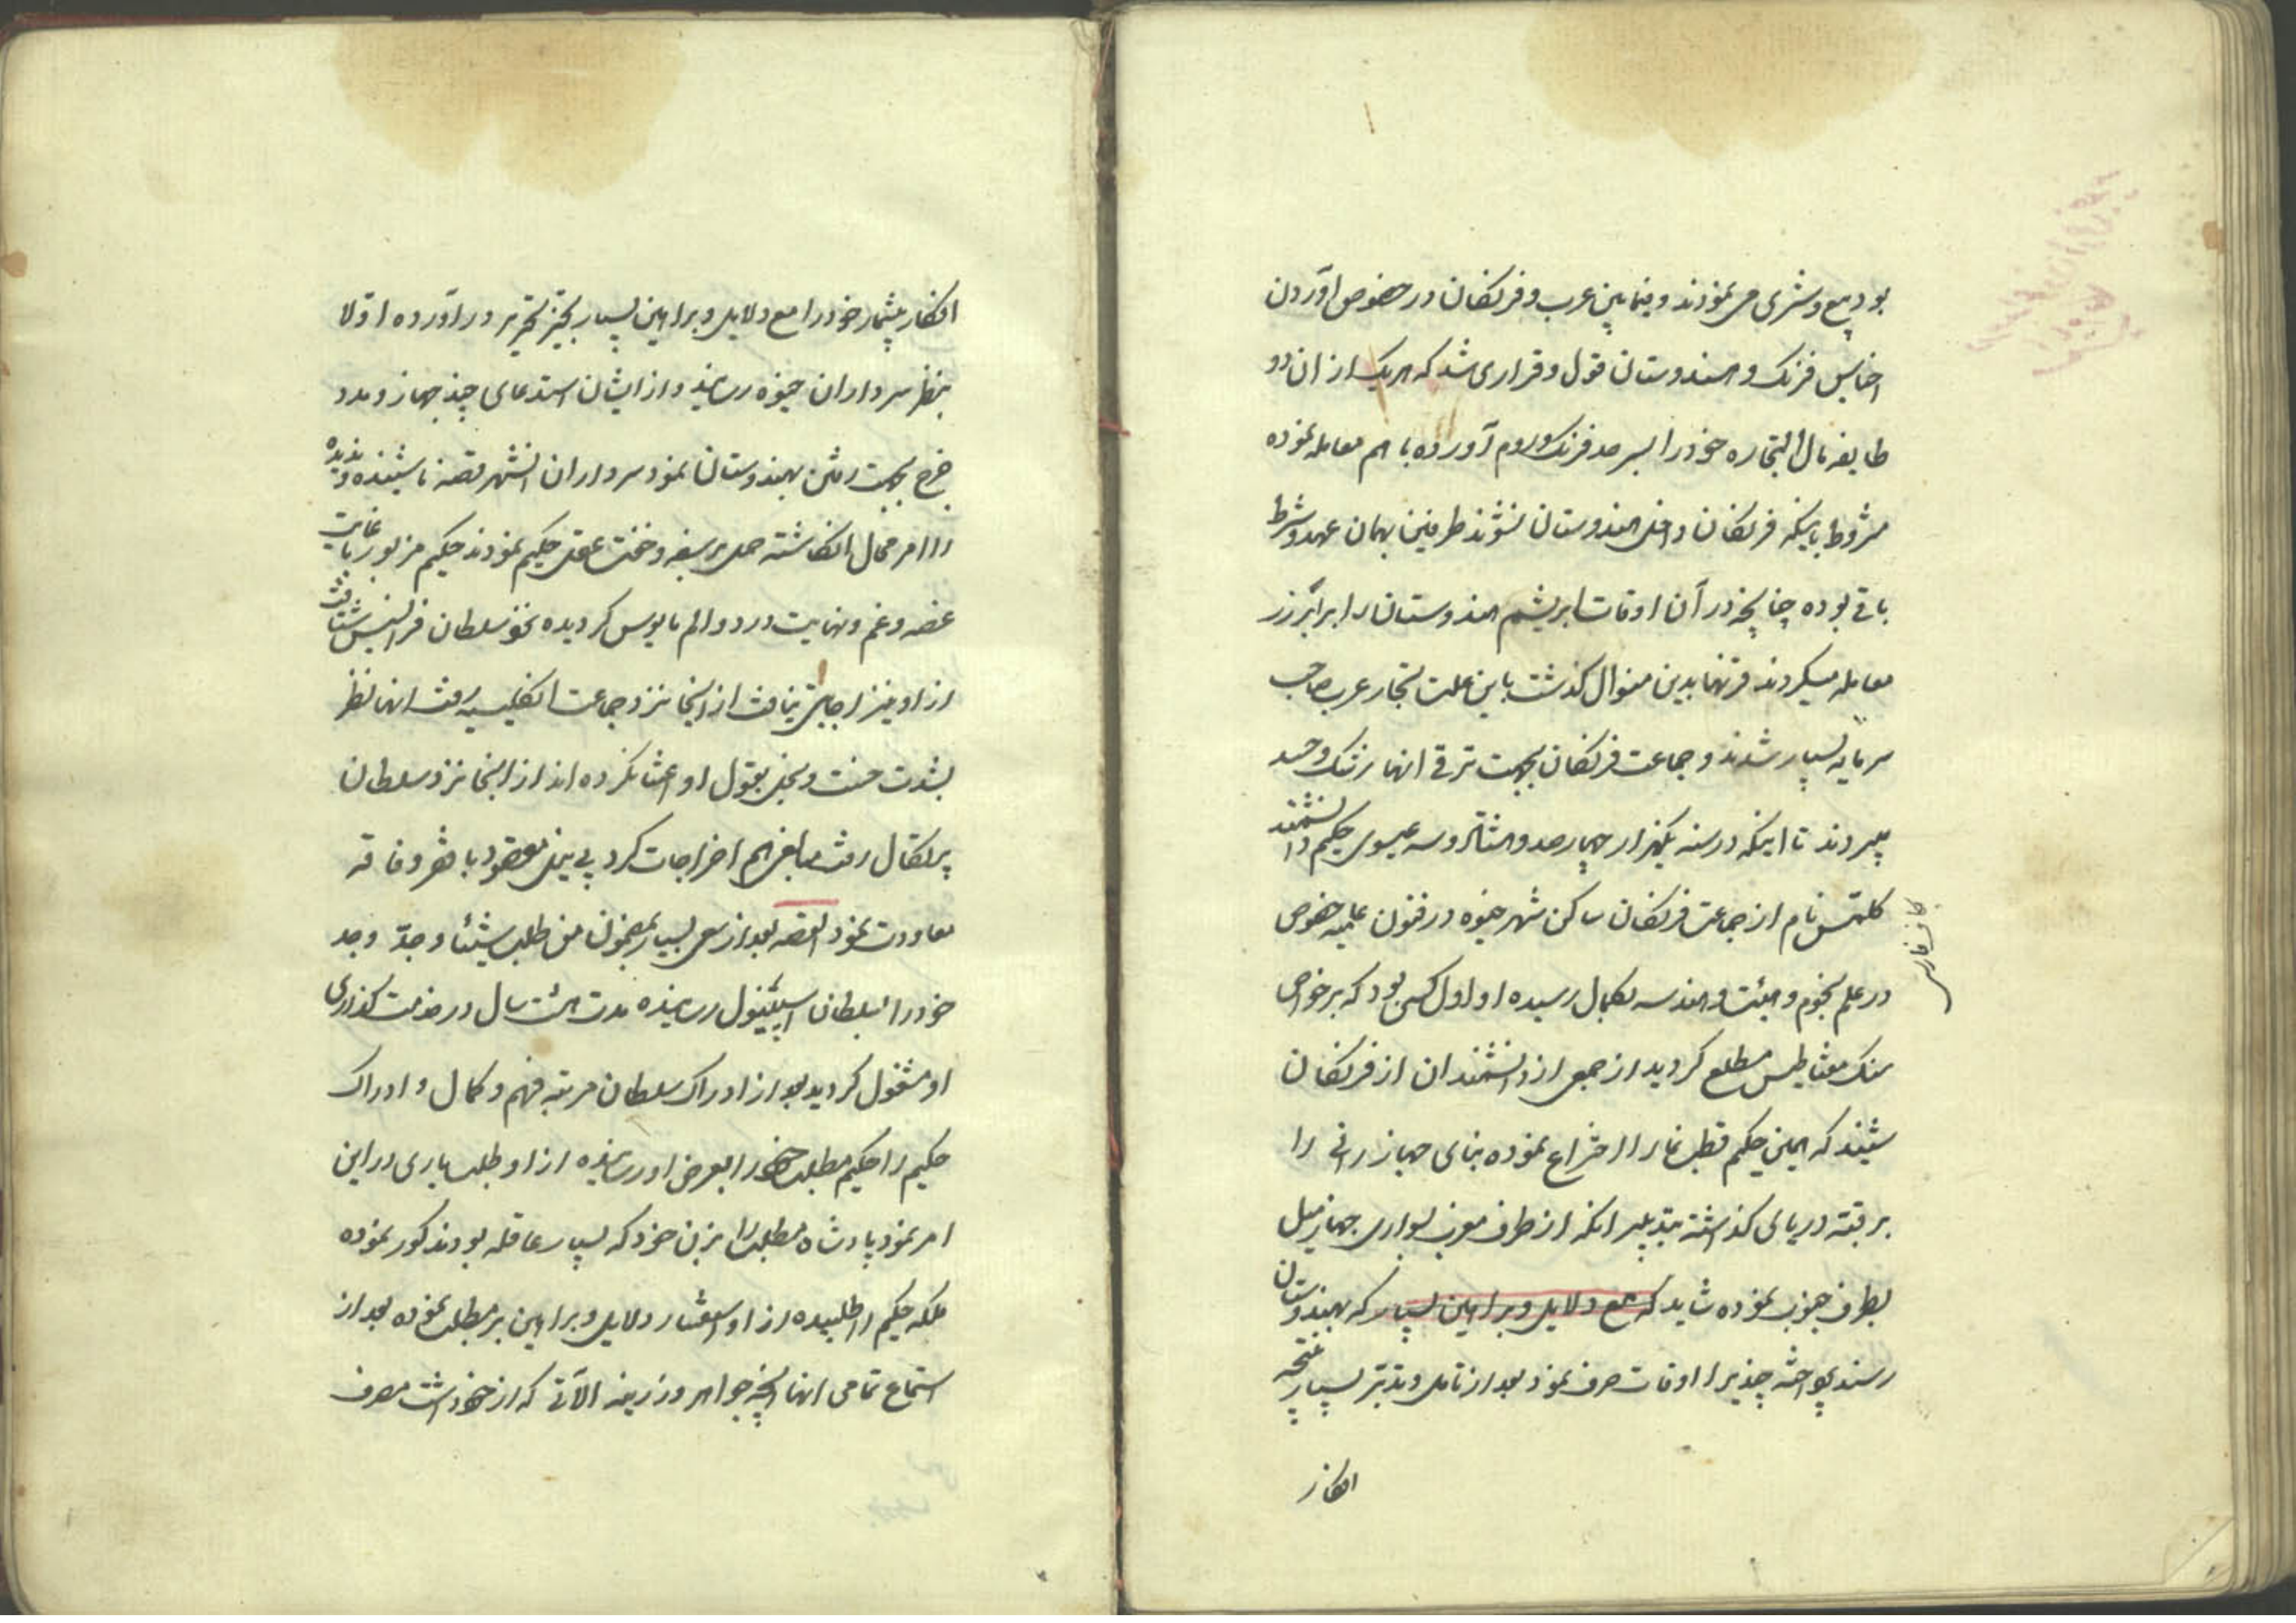 بود بیع و شری می نمودند و فیمابین عرب و فرنکان در خصوص آوردن
اجناس فرنک و هندوستان قول و قراری شد که هر یک از ان دو
طایفه مال التجاره خود را بسرحد فرنک و روم آورده با هم معامله نموده
مشروط باینکه فرنکان داخل هندوستان نشوند طرفین بهمان عهد و شرط
باقی بوده چنانچه در آن اوقات ابریشم هندوستان را برابر زر
معامله میکردند قرنها بدین منوال کذشت باین علت تجار عرب صاحب
سرمایه بسیار شدند و جماعت فرنکان بجهت ترقی انها رشک و حسد
میبردند تا اینکه در سنه یکهزار چهارصد و هشتاد و سه عیسوی حکیم دانشمند
کلمتس نام از جماعت فرنکان ساکن شهر جنوه در فنون علمیه خصوص
در علم نجوم و هیئت و هندسه بکمال رسیده او اول کسی بود که بر خواص
سنک مغناطیس مطلع کردید از جمعی از دانشمندان از فرنکان
شنیدند که همین حکیم قطب نما را اختراع نموده بنای جهاز رانی را
بر قته دریای کذاشته بتدبیر انکه از طرف مغرب بسواری جهاز میل
بطرف جنوب نموده شاید که مع دلایل و براهین بسیار که بهندوستان
رسند چند یرا اوقات صرف نمود بعد از تامل و تدبر بسیار نتیجه
افکار
افکار بیشمار خود را مع دلایل و براهین بسیار بحیز تحریر در آورده اولا
بنظر سرداران جنوه رسانید و از ایشان استدعای چند جهاز و مدد
خرج بجهت رفتن بهندوستان نمود سرداران انشهر قصه ناشنیده و ندیده
را امر محال انکاشته حمل بر سفه و خفت عقل حکیم نمودند حکیم مزبور با غایت
غصه و غم و نهایت درد و الم مایوس کردیده نحو سلطان فرانسیس شتافت
از او نیز اجابتی نیافت از اینجا نزد جماعت انکلیسیه رفت انها نظر
بشدت خست و بخل بقول او اعتنا نکرده اند از اینجا نزد سلطان
پرتکال رفت مبالغی هم اخراجات کرد بی نیل مقصود با فقر و فاقه
معاودت نمود القصه بعد از سعی بسیار بمضمون من طلب شیئا و جدّ وجد
خود را بسلطان اسپینول رسانیده مدت هشت سال در خدمت کذاری
او مشغول کردید بعد از ادراک سلطان مرتبه فهم و کمال و ادراک
حکیم را حکیم مطلب خود را بعرض او رسانیده از او طلب یاری در این
امر نمود پادشاه مطلب را بزن خود که بسیار عاقله بود مذکور نموده
ملکه حکیم را طلبیده از او استفسار دلایل و براهین بر مطلب نموده بعد از
استماع تمامی انها انچه جواهر و زرینه الآتی که از خود داشت صرف